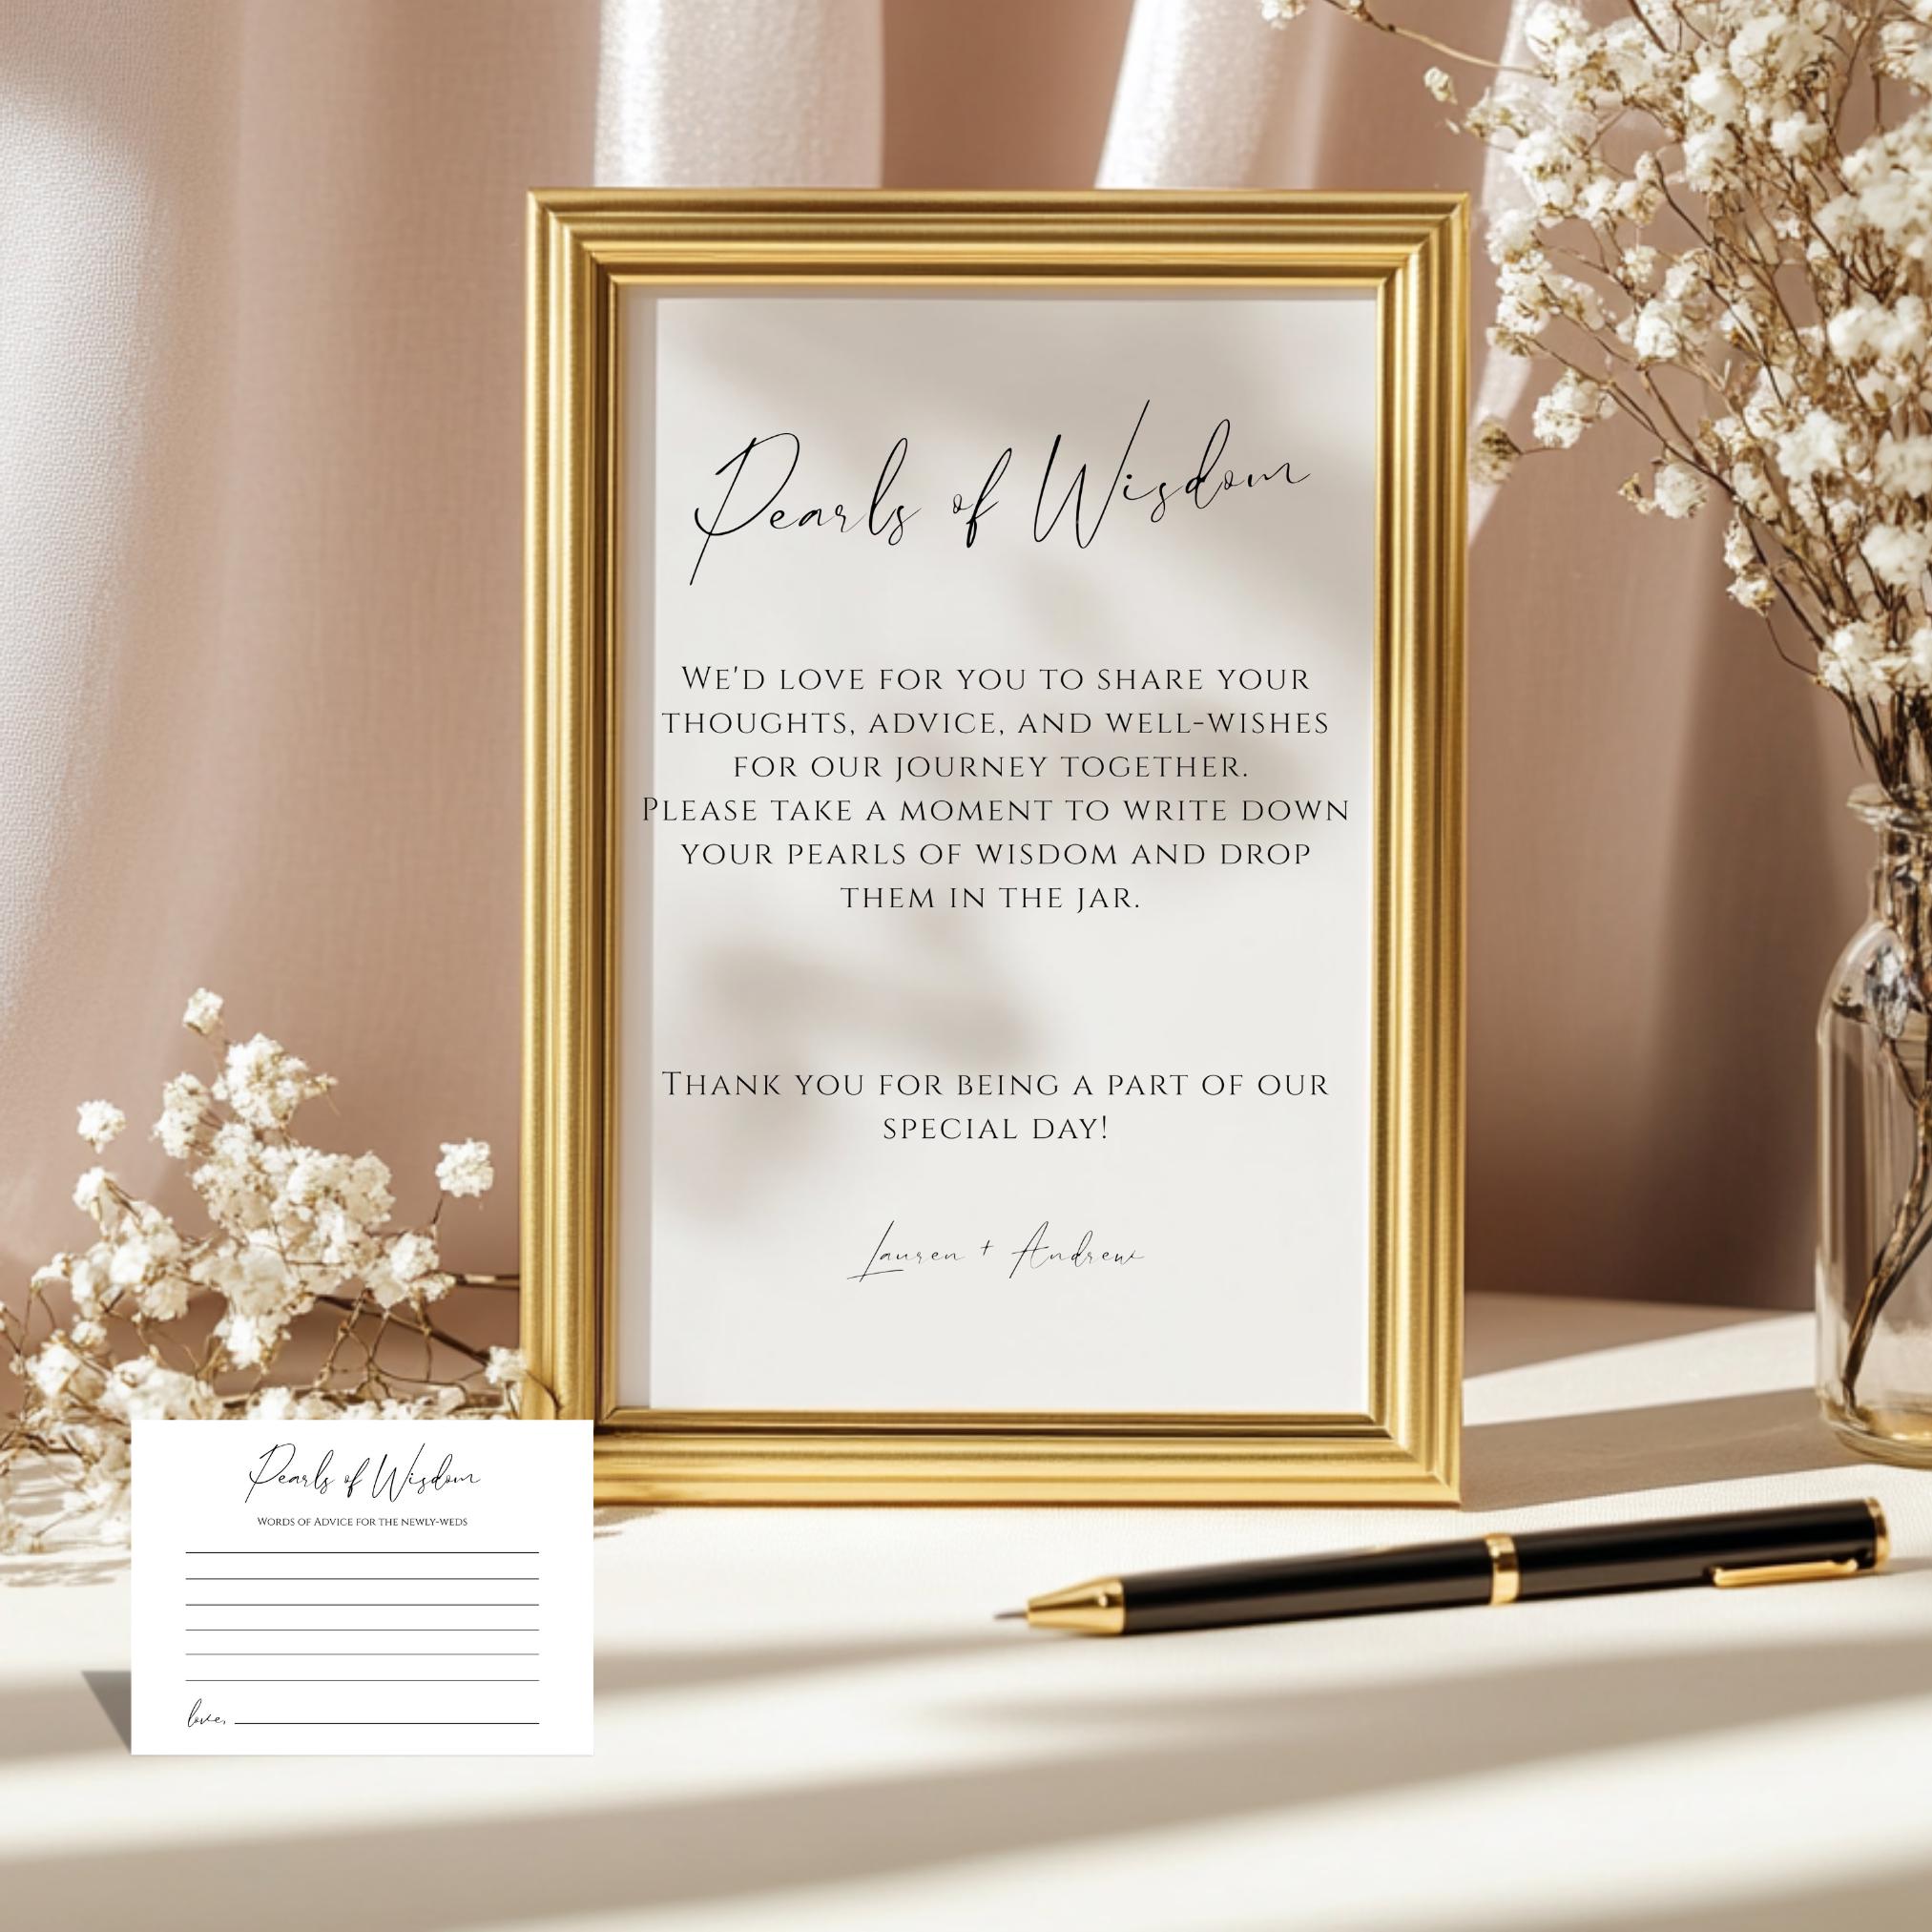 Pearls of Wisdom
We'd love for you to share your
thoughts, advice, and well-wishes
for our journey together.
Please take a moment to write down
your pearls of wisdom and drop
them in the jar.
Thank you for being a part of our
special day!
Lauren + Andrew
Pearls of Wisdom
Words of Advice for the newly-weds
love,